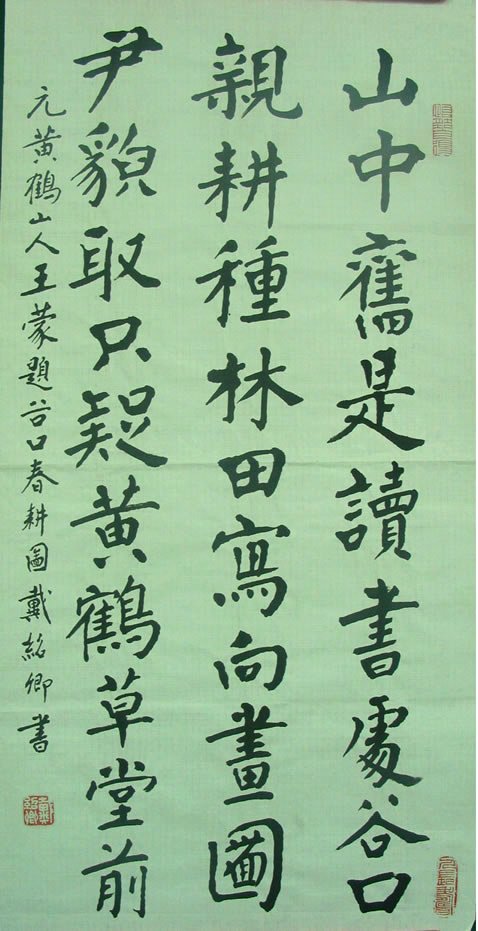 山中舊是讀書處谷口
親耕種林田寫向畫圖
尹貌取只疑黄鶴草堂前
元黄鶴山人王蒙題谷口春耕圖戴紹卿書